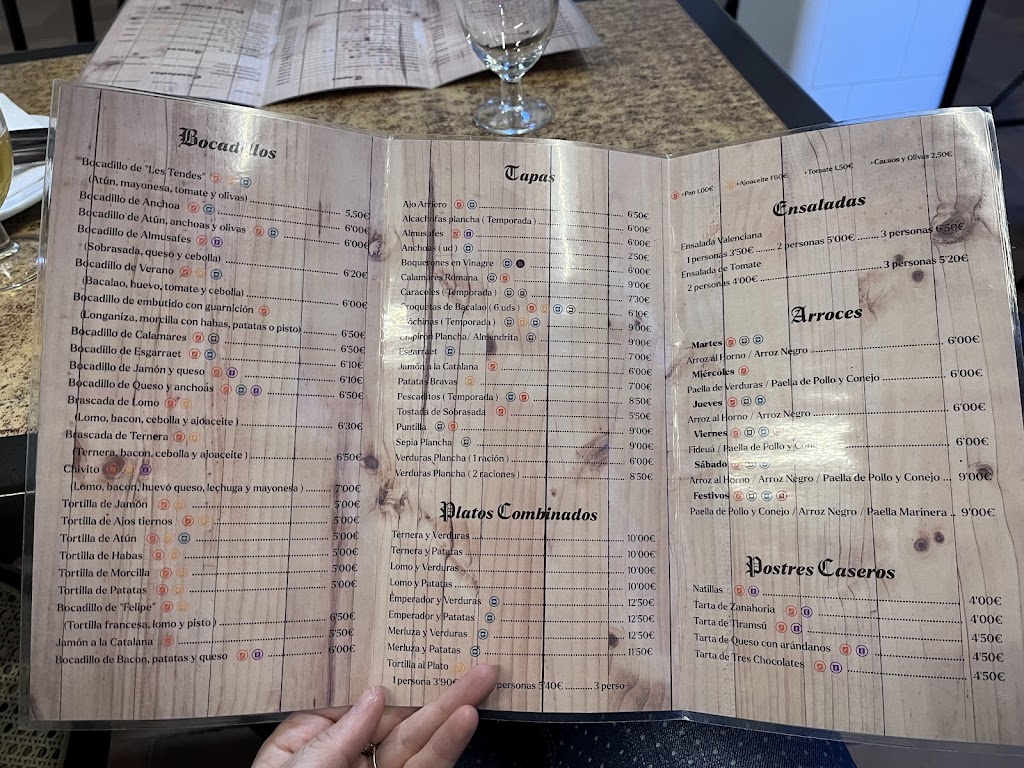 Bocadillos
Bocadillo de "Les Tendes"
(Atún, mayonesa, tomate y olivas) 5,50€
Bocadillo de Anchoa 6'00€
Bocadillo de Atún, anchoas y olivas 6'00€
Bocadillo de Almusafes
(Sobrasada, queso y cebolla) 6'20€
Bocadillo de Verano
(Bacalao, huevo, tomate y cebolla) 6'00€
Bocadillo de embutido con guarnición
(Longaniza, morcilla con habas, patatas o pisto) 6'50€
Bocadillo de Calamares 6'50€
Bocadillo de Esgarraet 6'10€
Bocadillo de Jamón y queso 6'10€
Bocadillo de Queso y anchoas 6'50€
Brascada de Lomo
(Lomo, bacon, cebolla y ajoaceite) 6'30€
Brascada de Ternera
(Ternera, bacon, cebolla y ajoaceite) 6'50€
Chivito
(Lomo, bacon, huevo queso, lechuga y mayonesa) 7'00€
Tortilla de Jamón 5'00€
Tortilla de Ajos tiernos 5'00€
Tortilla de Atún 5'00€
Tortilla de Habas 5'00€
Tortilla de Morcilla 5'00€
Tortilla de Patatas 5'00€
Bocadillo de "Felipe"
(Tortilla francesa, lomo y pisto) 6'50€
Jamón a la Catalana 5'50€
Bocadillo de Bacon, patatas y queso 6'00€
Tapas
Ajo Arriero 6'50€
Alcachofas plancha (Temporada) 6'00€
Almusafes 6'00€
Anchoas (ud) 2'50€
Boquerones en Vinagre 6'00€
Calamares Romana 9'00€
Caracoles (Temporada) 7'30€
Croquetas de Bacalao (6 uds) 6'10€
Clóchinas (Temporada) 9'00€
Chipirón Plancha/ Almendrita 9'00€
Esgarraet 7'00€
Jamón a la Catalana 6'00€
Patatas Bravas 7'00€
Pescaditos (Temporada) 8'50€
Tostada de Sobrasada 5'50€
Puntilla 9'00€
Sepia Plancha 9'00€
Verduras Plancha (1 ración) 6'00€
Verduras Plancha (2 raciones) 8'50€
Platos Combinados
Ternera y Verduras 10'00€
Ternera y Patatas 10'00€
Lomo y Verduras 10'00€
Lomo y Patatas 10'00€
Emperador y Verduras 12'50€
Emperador y Patatas 12'50€
Merluza y Verduras 12'50€
Merluza y Patatas 11'50€
Tortilla al Plato
1 persona 3'90€ personas 5'40€ 3 perso
+Pan 1,00€ +Ajoaceite 1'60€ +Tomate 1,50€ +Cacaos y Olivas 2,50€
Ensaladas
Ensalada Valenciana
1 personas 3'50€ 2 personas 5'00€ 3 personas 6'50€
Ensalada de Tomate
2 personas 4'00€ 3 personas 5'20€
Arroces
Martes
Arroz al Horno / Arroz Negro 6'00€
Miércoles
Paella de Verduras / Paella de Pollo y Conejo 6'00€
Jueves
Arroz al Horno / Arroz Negro 6'00€
Viernes
Fideuá / Paella de Pollo y 6'00€
Sábado
Arroz al Horno / Arroz Negro / Paella de Pollo y Conejo 9'00€
Festivos
Paella de Pollo y Conejo / Arroz Negro / Paella Marinera 9'00€
Postres Caseros
Natillas 4'00€
Tarta de Zanahoria 4'00€
Tarta de Tiramsú 4'50€
Tarta de Queso con arándanos 4'50€
Tarta de Tres Chocolates 4'50€